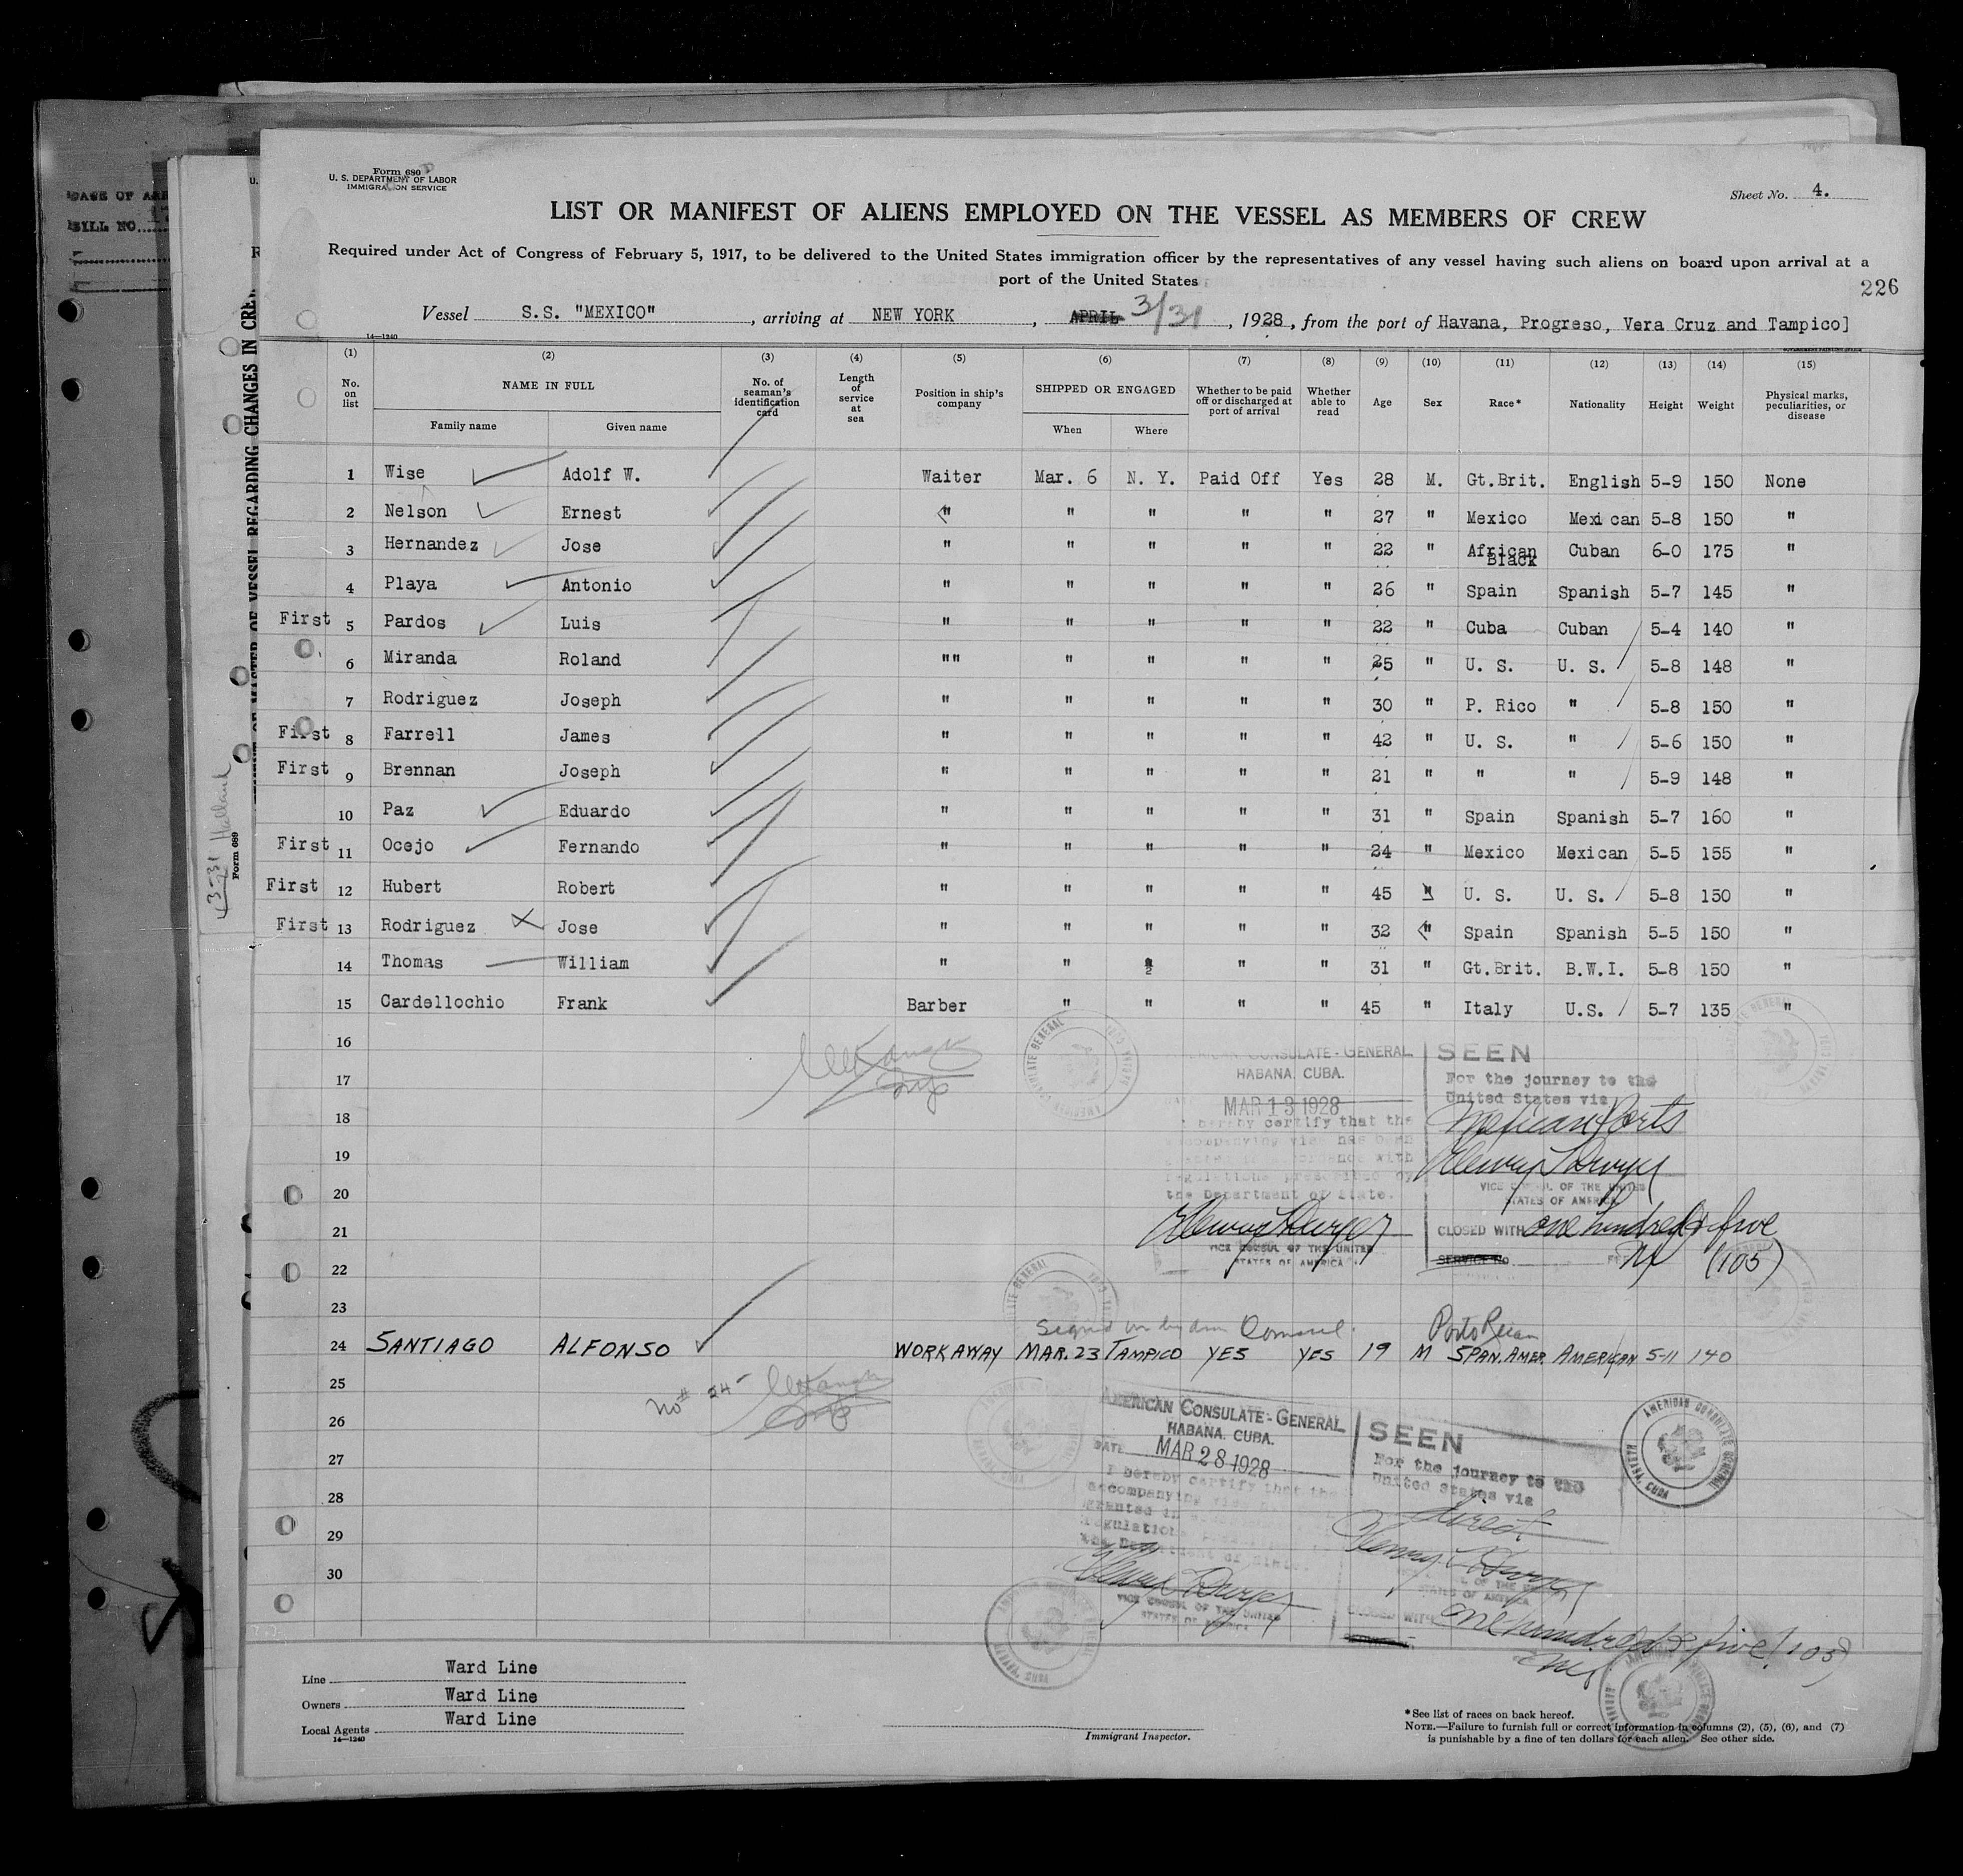 Form 680
U. S. DEPARTMENT OF LABOR
IMMIGRATION SERVICE
Sheet No. 4.
LIST OR MANIFEST OF ALIENS EMPLOYED ON THE VESSEL AS MEMBERS OF CREW
Required under Act of Congress of February 5, 1917, to be delivered to the United States immigration officer by the representatives of any vessel having such aliens on board upon arrival at a
port of the United States
226
Vessel S.S. "MEXICO", arriving at NEW YORK, APRIL 3/31, 1928, from the port of Havana, Progreso, Vera Cruz and Tampico]
14—1240
(1) (2) (3) (4) (5) (6) (7) (8) (9) (10) (11) (12) (13) (14) (15)
No. on list NAME IN FULL No. of seaman's identification card Length of service at sea Position in ship's company SHIPPED OR ENGAGED Whether to be paid off or discharged at port of arrival Whether able to read Age Sex Race* Nationality Height Weight Physical marks, peculiarities, or disease
Family name Given name When Where
1 Wise Adolf W. Waiter Mar. 6 N. Y. Paid Off Yes 28 M. Gt.Brit. English 5-9 150 None
2 Nelson Ernest " " " " " 27 " Mexico Mexican 5-8 150 "
3 Hernandez Jose " " " " " 22 " African Black Cuban 6-0 175 "
4 Playa Antonio " " " " " 26 " Spain Spanish 5-7 145 "
First 5 Pardos Luis " " " " " 22 " Cuba Cuban 5-4 140 "
6 Miranda Roland "" " " " " 25 " U. S. U. S. 5-8 148 "
7 Rodriguez Joseph " " " " " 30 " P. Rico " 5-8 150 "
First 8 Farrell James " " " " " 42 " U. S. " 5-6 150 "
First 9 Brennan Joseph " " " " " 21 " " " 5-9 148 "
10 Paz Eduardo " " " " " 31 " Spain Spanish 5-7 160 "
First 11 Ocejo Fernando " " " " " 24 " Mexico Mexican 5-5 155 "
First 12 Hubert Robert " " " " " 45 " U. S. U. S. 5-8 150 "
First 13 Rodriguez Jose " " " " " 32 " Spain Spanish 5-5 150 "
14 Thomas William " " " " 31 " Gt.Brit. B.W.I. 5-8 150 "
15 Cardellochio Frank Barber " " " " 45 " Italy U.S. 5-7 135 "
16
17
18
19
20
21
22
23
AMERICAN CONSULATE-GENERAL
HABANA, CUBA.
MAR 13 1928
I hereby certify that the
accompanying visa has been
granted in accordance with
regulations prescribed by
the Department of State.
VICE CONSUL OF THE UNITED
STATES OF AMERICA
SEEN
For the journey to the
United States via
Mexican Ports
VICE CONSUL OF THE UNITED
STATES OF AMERICA
CLOSED WITH one hundred & five
SERVICE No
(105)
Signed on by Am Consul.
Porto Rican
24 SANTIAGO ALFONSO WORKAWAY MAR. 23 TAMPICO YES YES 19 M SPAN. AMER. AMERICAN 5-11 140
No# 24-
25
26
27
28
29
30
AMERICAN CONSULATE-GENERAL
HABANA, CUBA.
DATE MAR 28 1928
I hereby certify that the
accompanying visa
granted in
regulations
the Department of State.
VICE CONSUL OF THE UNITED
STATES OF AMERICA
SEEN
For the journey to the
United States via
direct
STATES OF AMERICA
CLOSED WITH one hundred & five (105)
AMERICAN CONSULATE GENERAL
HABANA, CUBA
Line Ward Line
Owners Ward Line
Local Agents Ward Line
14—1240
Immigrant Inspector.
*See list of races on back hereof.
NOTE.—Failure to furnish full or correct information in columns (2), (5), (6), and (7)
is punishable by a fine of ten dollars for each alien. See other side.
BILL NO.
REGARDING CHANGES IN CREW
Form 689